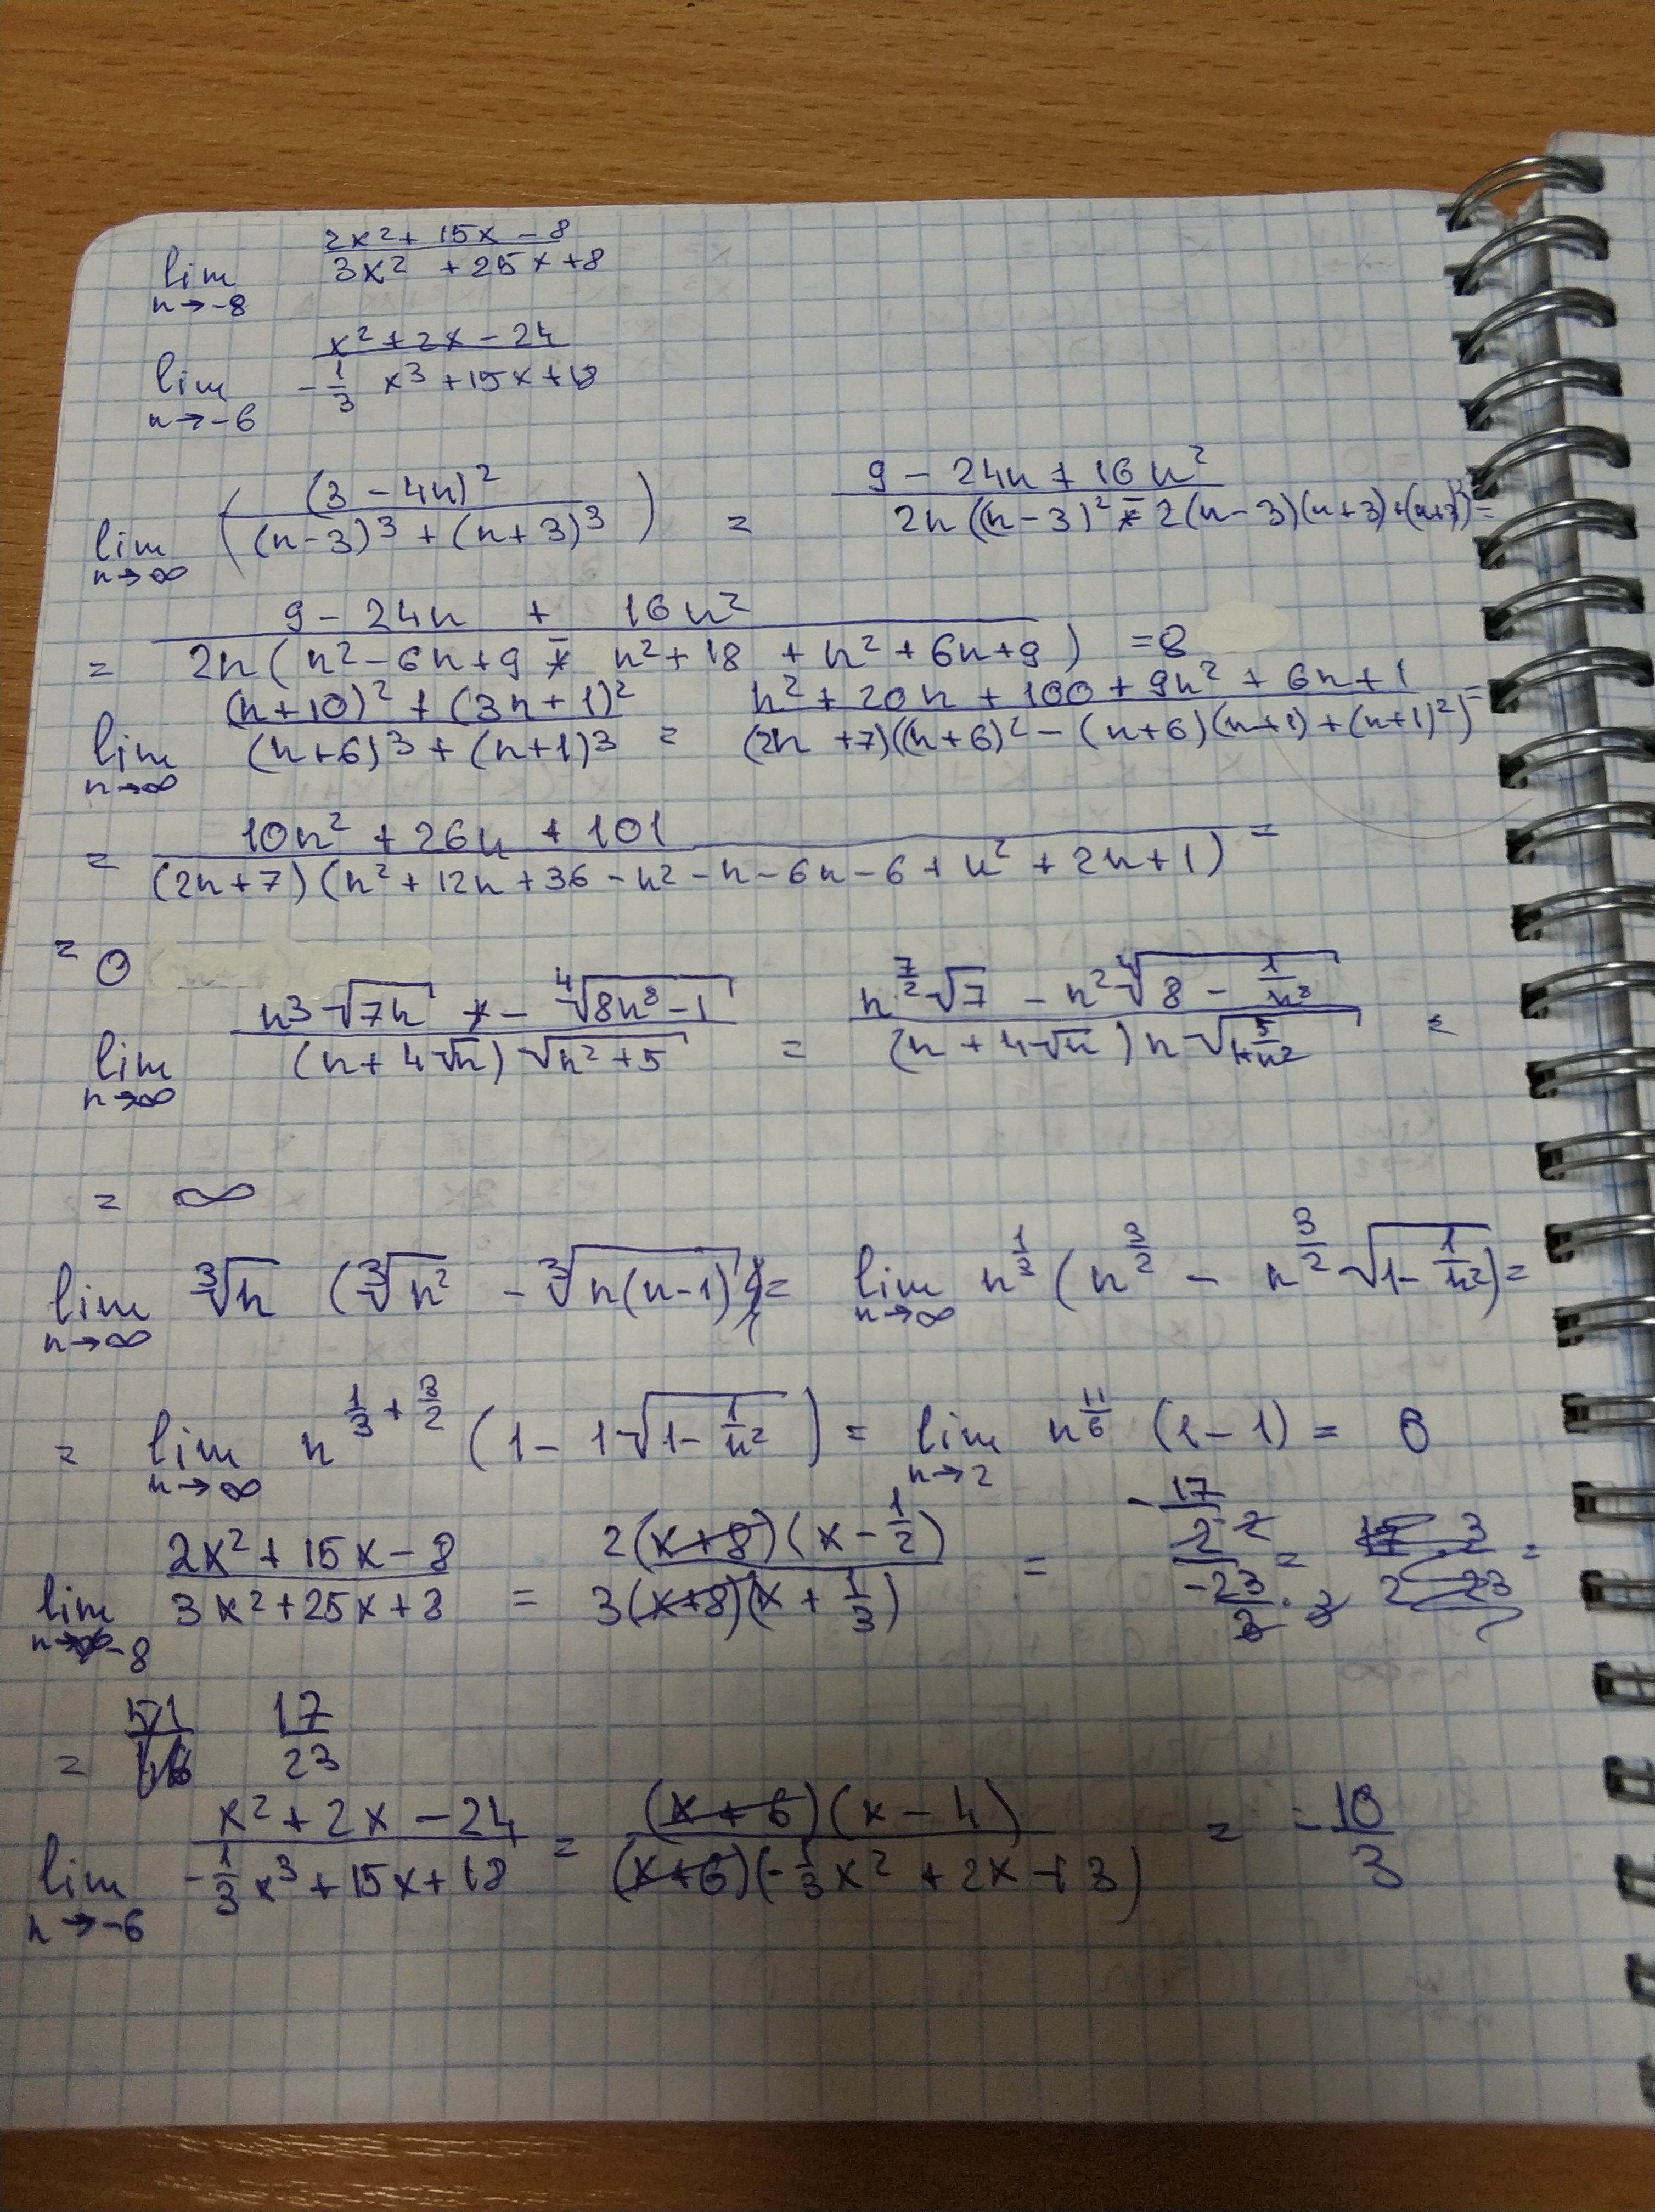 lim n→-8 (2x² + 15x - 8)/(3x² + 25x + 8)
lim n→-6 (x² + 2x - 24)/(-1/3 x³ + 15x + 18)
lim n→∞ ((3 - 4n)²/((n-3)³ + (n+3)³)) = (9 - 24n + 16n²)/(2n((n-3)² - 2(n-3)(n+3) + (n+3)²) =
= (9 - 24n + 16n²)/(2n(n² - 6n + 9 - n² + 18 + n² + 6n + 9)) = 8
lim n→∞ ((n+10)² + (3n+1)²)/((n+6)³ + (n+1)³) = (n² + 20n + 100 + 9n² + 6n + 1)/((2n + 7)((n+6)² - (n+6)(n+1) + (n+1)²) =
= (10n² + 26n + 101)/((2n+7)(n² + 12n + 36 - n² - n - 6n - 6 + n² + 2n + 1) =
= 0
lim n→∞ (n³√7n - ⁴√(8n⁸ - 1))/((n + 4√n)√(n² + 5)) = (n^(7/2)√7 - n² ⁴√(8 - 1/n⁸))/((n + 4√n)n√(1+5/n²)) =
= ∞
lim n→∞ ³√n (³√n² - ³√(n(n-1))) = lim n→∞ n^(1/3) (n^(3/2) - n^(3/2)√(1 - 1/n²)) =
= lim n→∞ n^(1/3 + 3/2) (1 - 1√(1 - 1/n²)) = lim n→2 n^(11/6) (1 - 1) = 0
lim n→-8 (2x² + 15x - 8)/(3x² + 25x + 8) = 2(x+8)(x - 1/2)/3(x+8)(x + 1/3) = (-17/2 · 2)/(-23/3 · 3) = =
= 17/23
lim n→-6 (x² + 2x - 24)/(-1/3 x³ + 15x + 18) = (x + 6)(x - 4)/(x+6)(-1/3 x² + 2x + 3) = -10/3